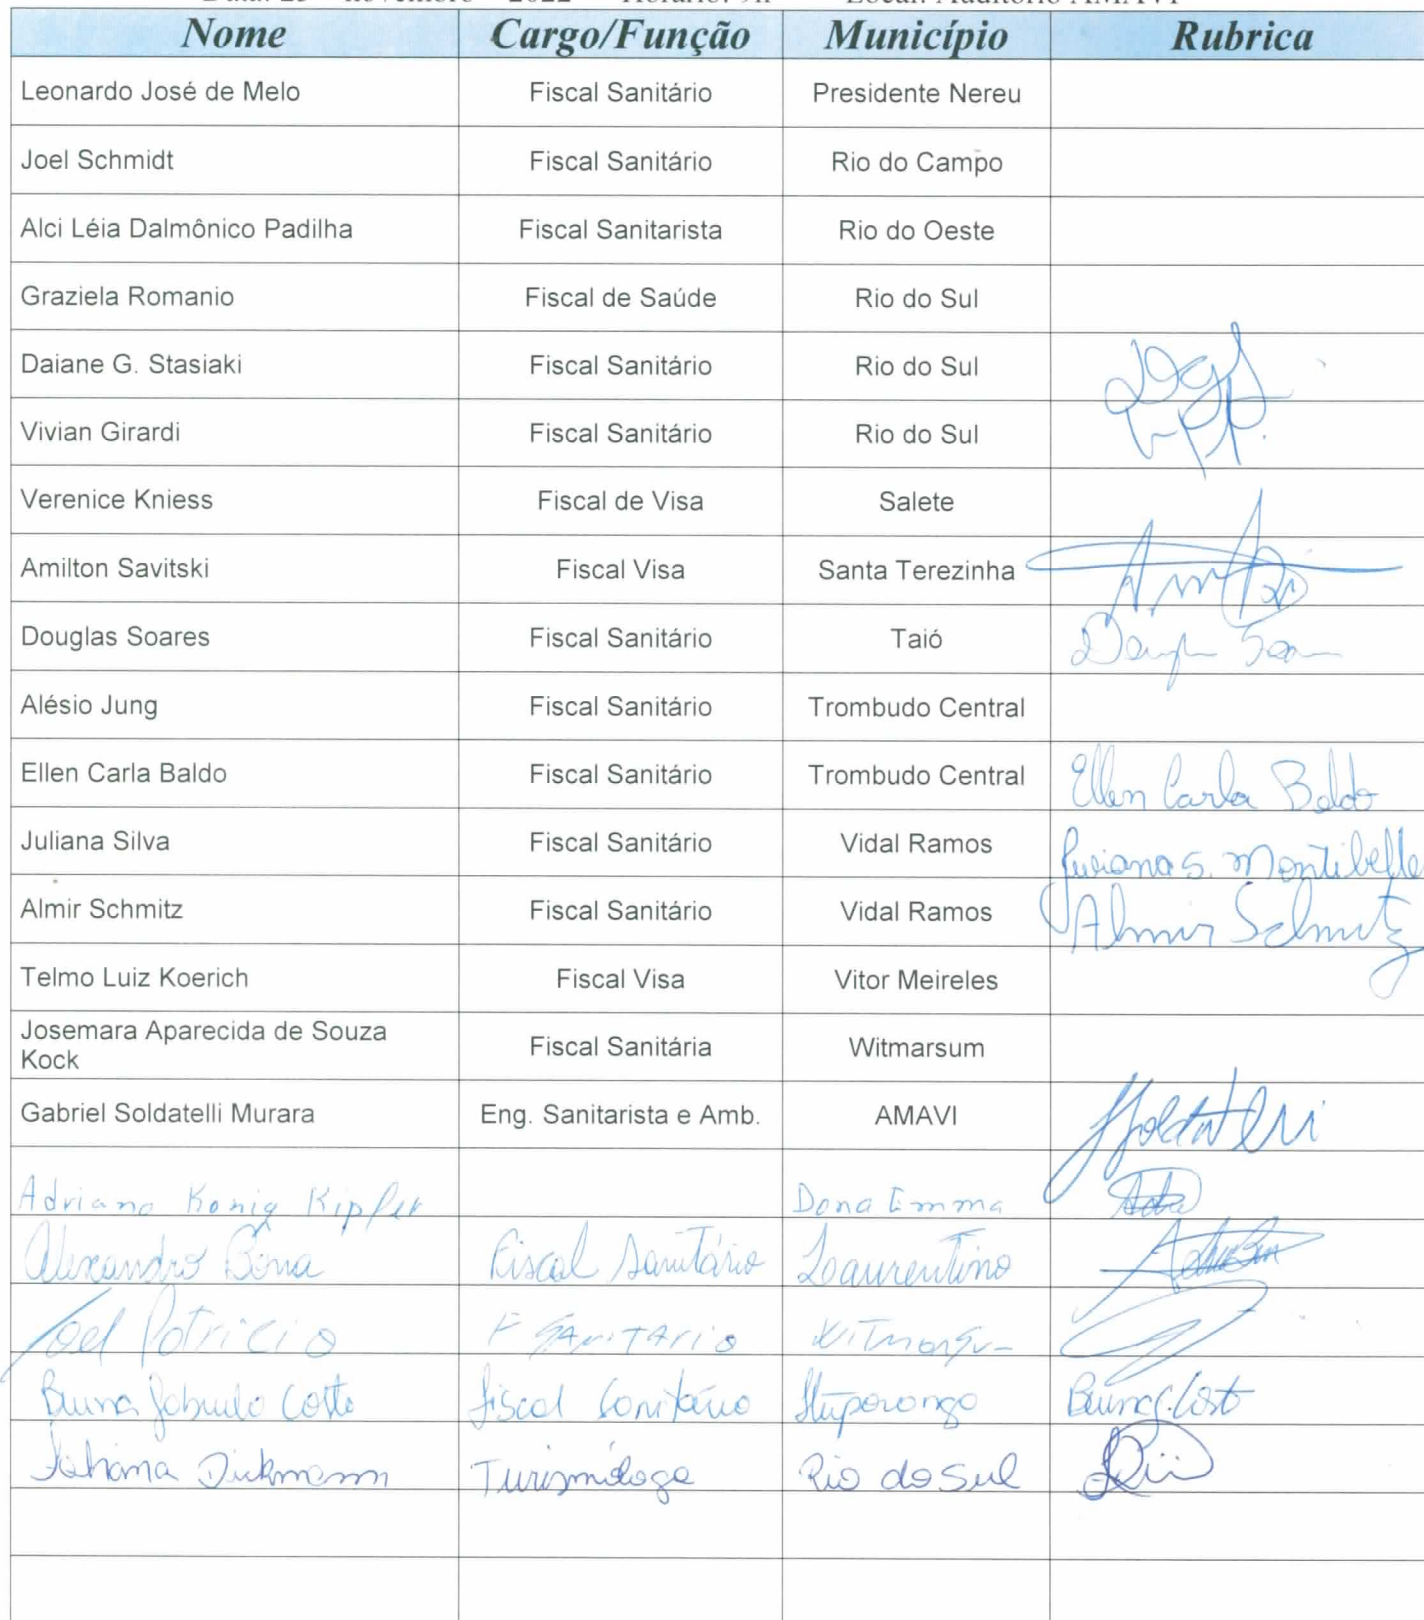 Data: 23 novembro 2022 Horário: 9h Local: Auditório AMAVI
Nome Cargo/Função Município Rubrica
Leonardo José de Melo Fiscal Sanitário Presidente Nereu
Joel Schmidt Fiscal Sanitário Rio do Campo
Alci Léia Dalmônico Padilha Fiscal Sanitarista Rio do Oeste
Graziela Romanio Fiscal de Saúde Rio do Sul
Daiane G. Stasiaki Fiscal Sanitário Rio do Sul
Vivian Girardi Fiscal Sanitário Rio do Sul
Verenice Kniess Fiscal de Visa Salete
Amilton Savitski Fiscal Visa Santa Terezinha
Douglas Soares Fiscal Sanitário Taió
Alésio Jung Fiscal Sanitário Trombudo Central
Ellen Carla Baldo Fiscal Sanitário Trombudo Central Ellen Carla Baldo
Juliana Silva Fiscal Sanitário Vidal Ramos S. Montibeller
Almir Schmitz Fiscal Sanitário Vidal Ramos Almir Schmitz
Telmo Luiz Koerich Fiscal Visa Vitor Meireles
Josemara Aparecida de Souza
Kock Fiscal Sanitária Witmarsum
Gabriel Soldatelli Murara Eng. Sanitarista e Amb. AMAVI
Adriano Konig Kipfer Dona Emma
Alexandro Bona Fiscal Sanitário Laurentino
Joel Patricio F SANITARIO
Bruna Costa Fiscal Sanitário Ituporanga
Dickmann Turismóloga Rio do Sul